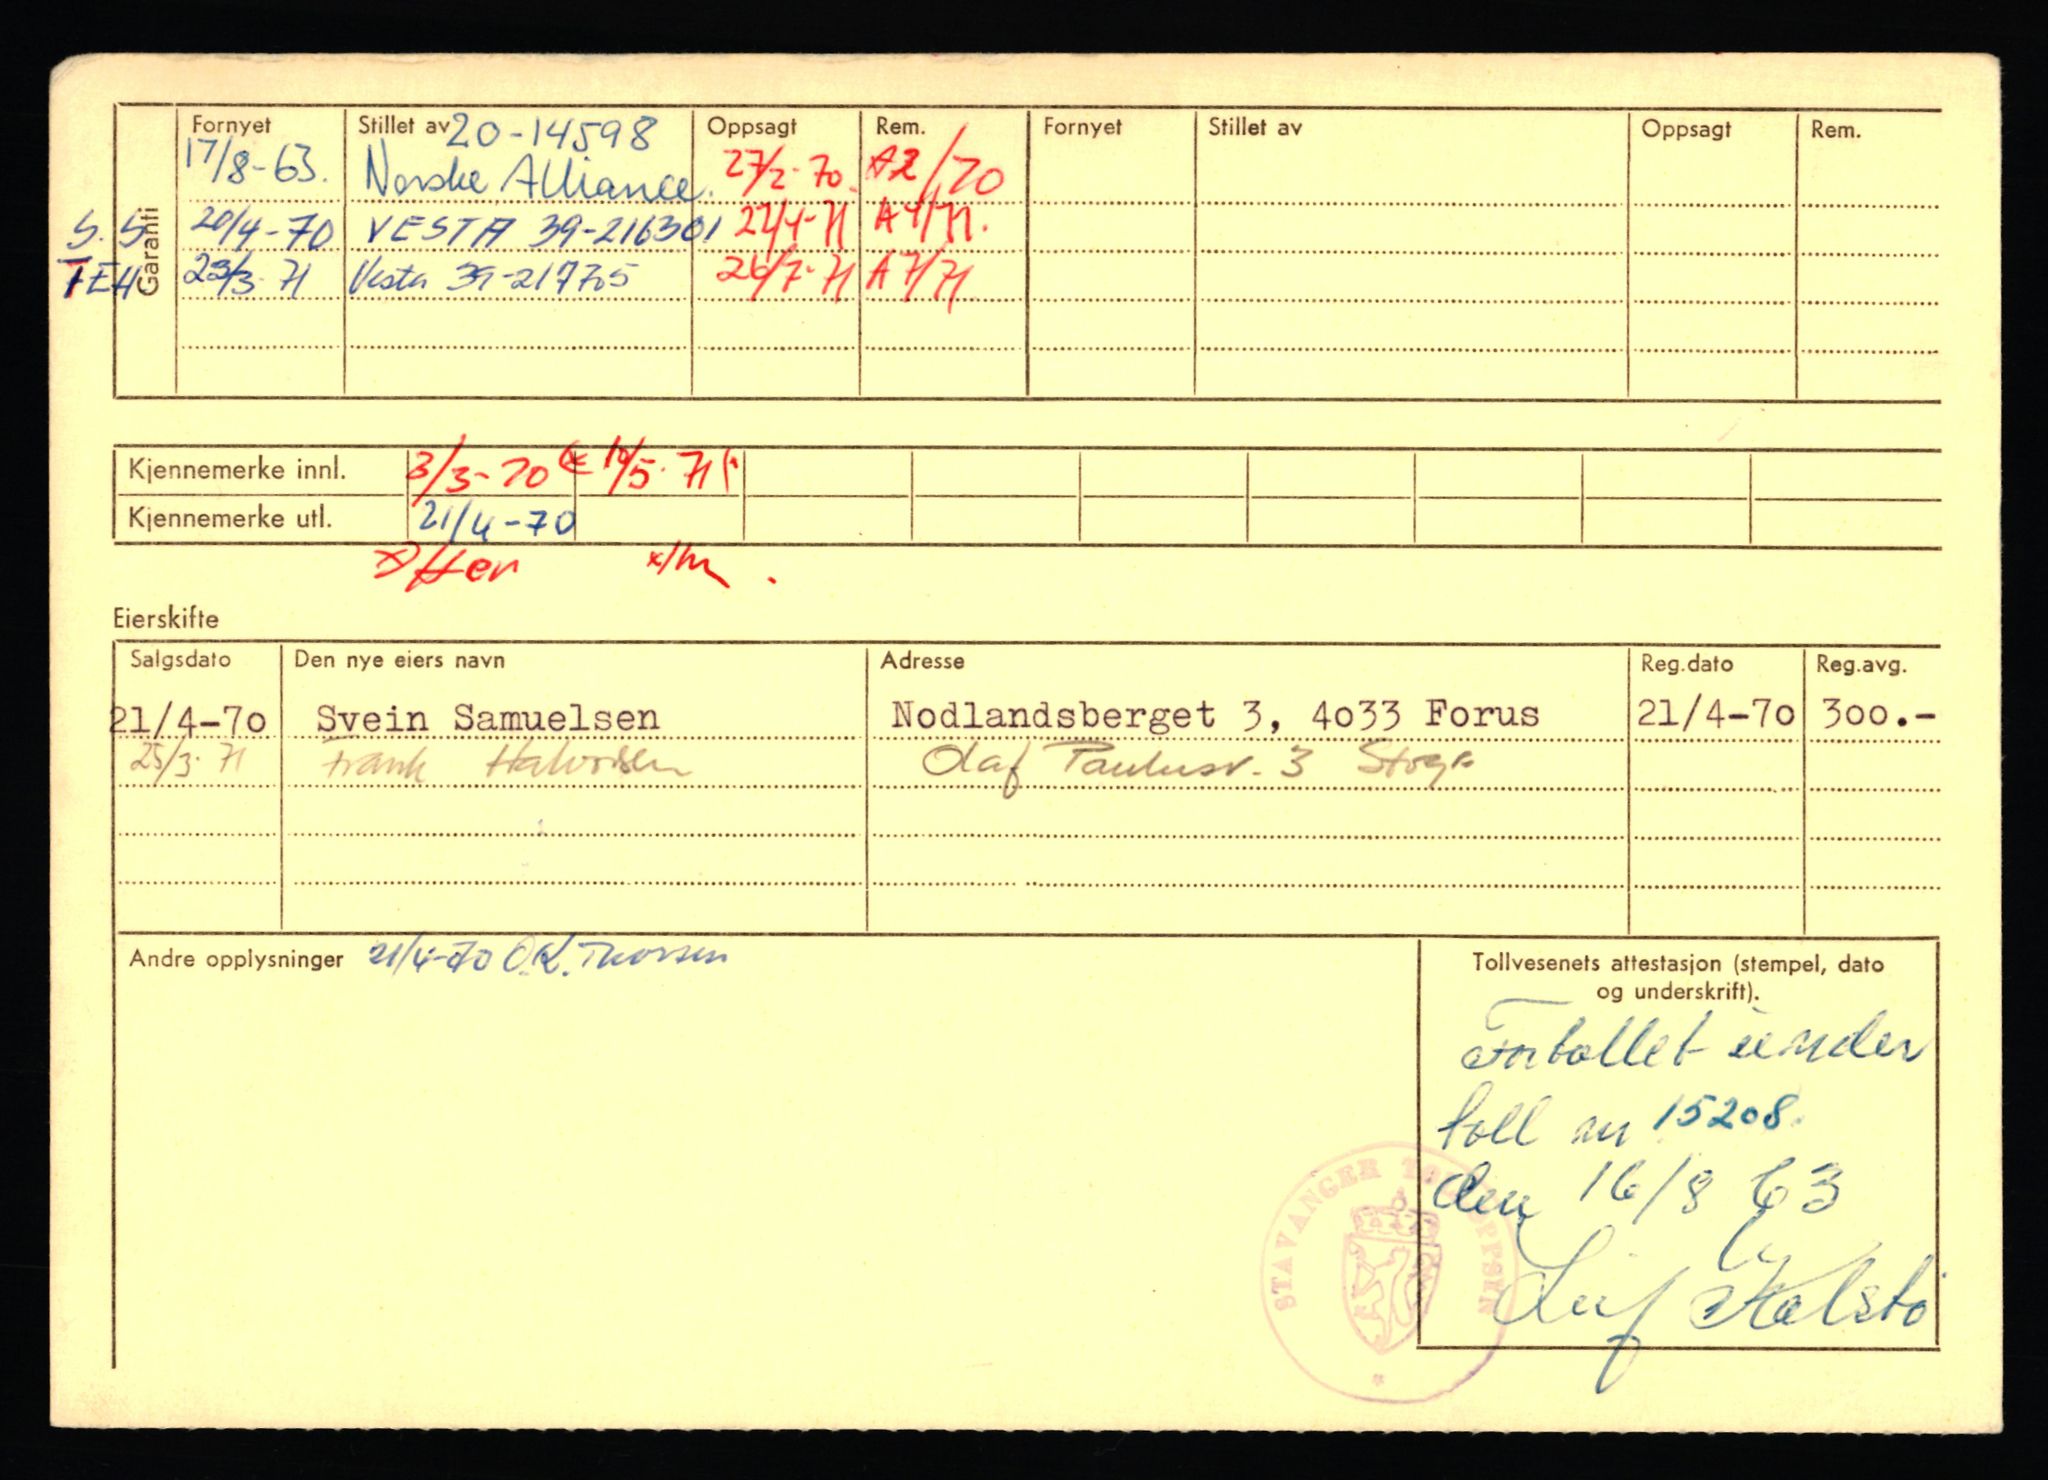 Garanti
Fornyet Stillet av 20-14598 Oppsagt Rem. Fornyet Stillet av Oppsagt Rem.
17/8-63. Norske Alliance. 27/2-70. A2/70
S.S 20/4-70 VESTA 39-216301 27/4-71 A4/71.
FEH 23/3-71 Vesta 39-217705 26/7-71 A7/71
Kjennemerke innl. 3/3-70 10/5-71
Kjennemerke utl. 21/4-70
Eierskifte
Salgsdato Den nye eiers navn Adresse Reg.dato Reg.avg.
21/4-70 Svein Samuelsen Nodlandsberget 3, 4033 Forus 21/4-70 300.-
25/3-71 Frank Halvorsen Olaf Paulusv. 3
Andre opplysninger 21/4-70 O.K. Thorsen
Tollvesenets attestasjon (stempel, dato
og underskrift).
Fortollet under
toll nr 15208.
den 16/8 63
Leif Kolstø
STAVANGER TOLLOPPSYN